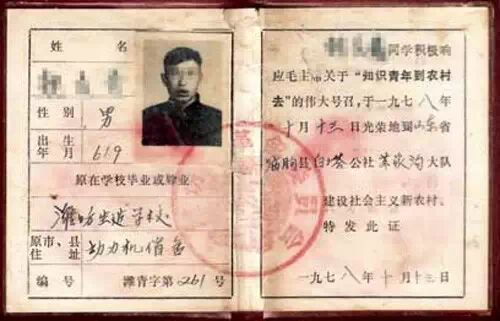 姓名
性别 男
出生年月 61.9
原在学校毕业或肄业
潍坊 学校
原市、县住址 动力机宿舍
编号 潍青字第261号
同学积极响
应毛主席关于“知识青年到农村
去”的伟大号召，于一九七八年
十月十三日光荣地到山东省
临朐县白塔公社 家沟大队
建设社会主义新农村。
特发此证
一九七八年十月十三日